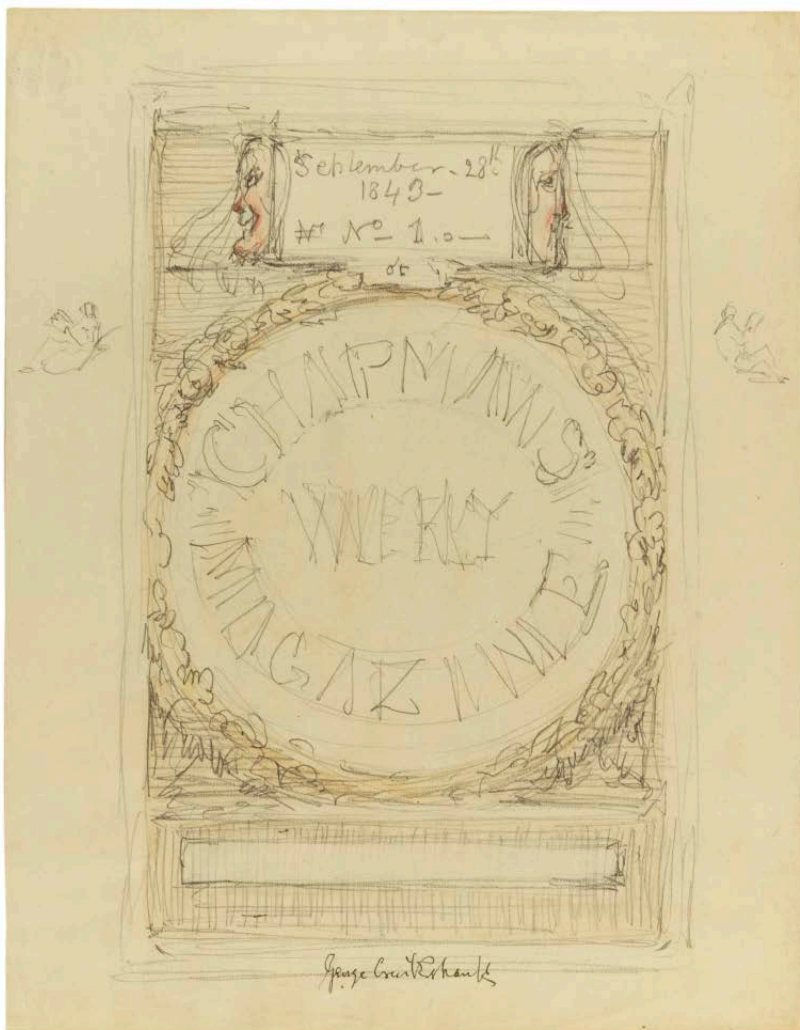 September - 28th
1843 -
No 1.
CHAPMANS
WEEKLY
MAGAZINE
George Cruikshank